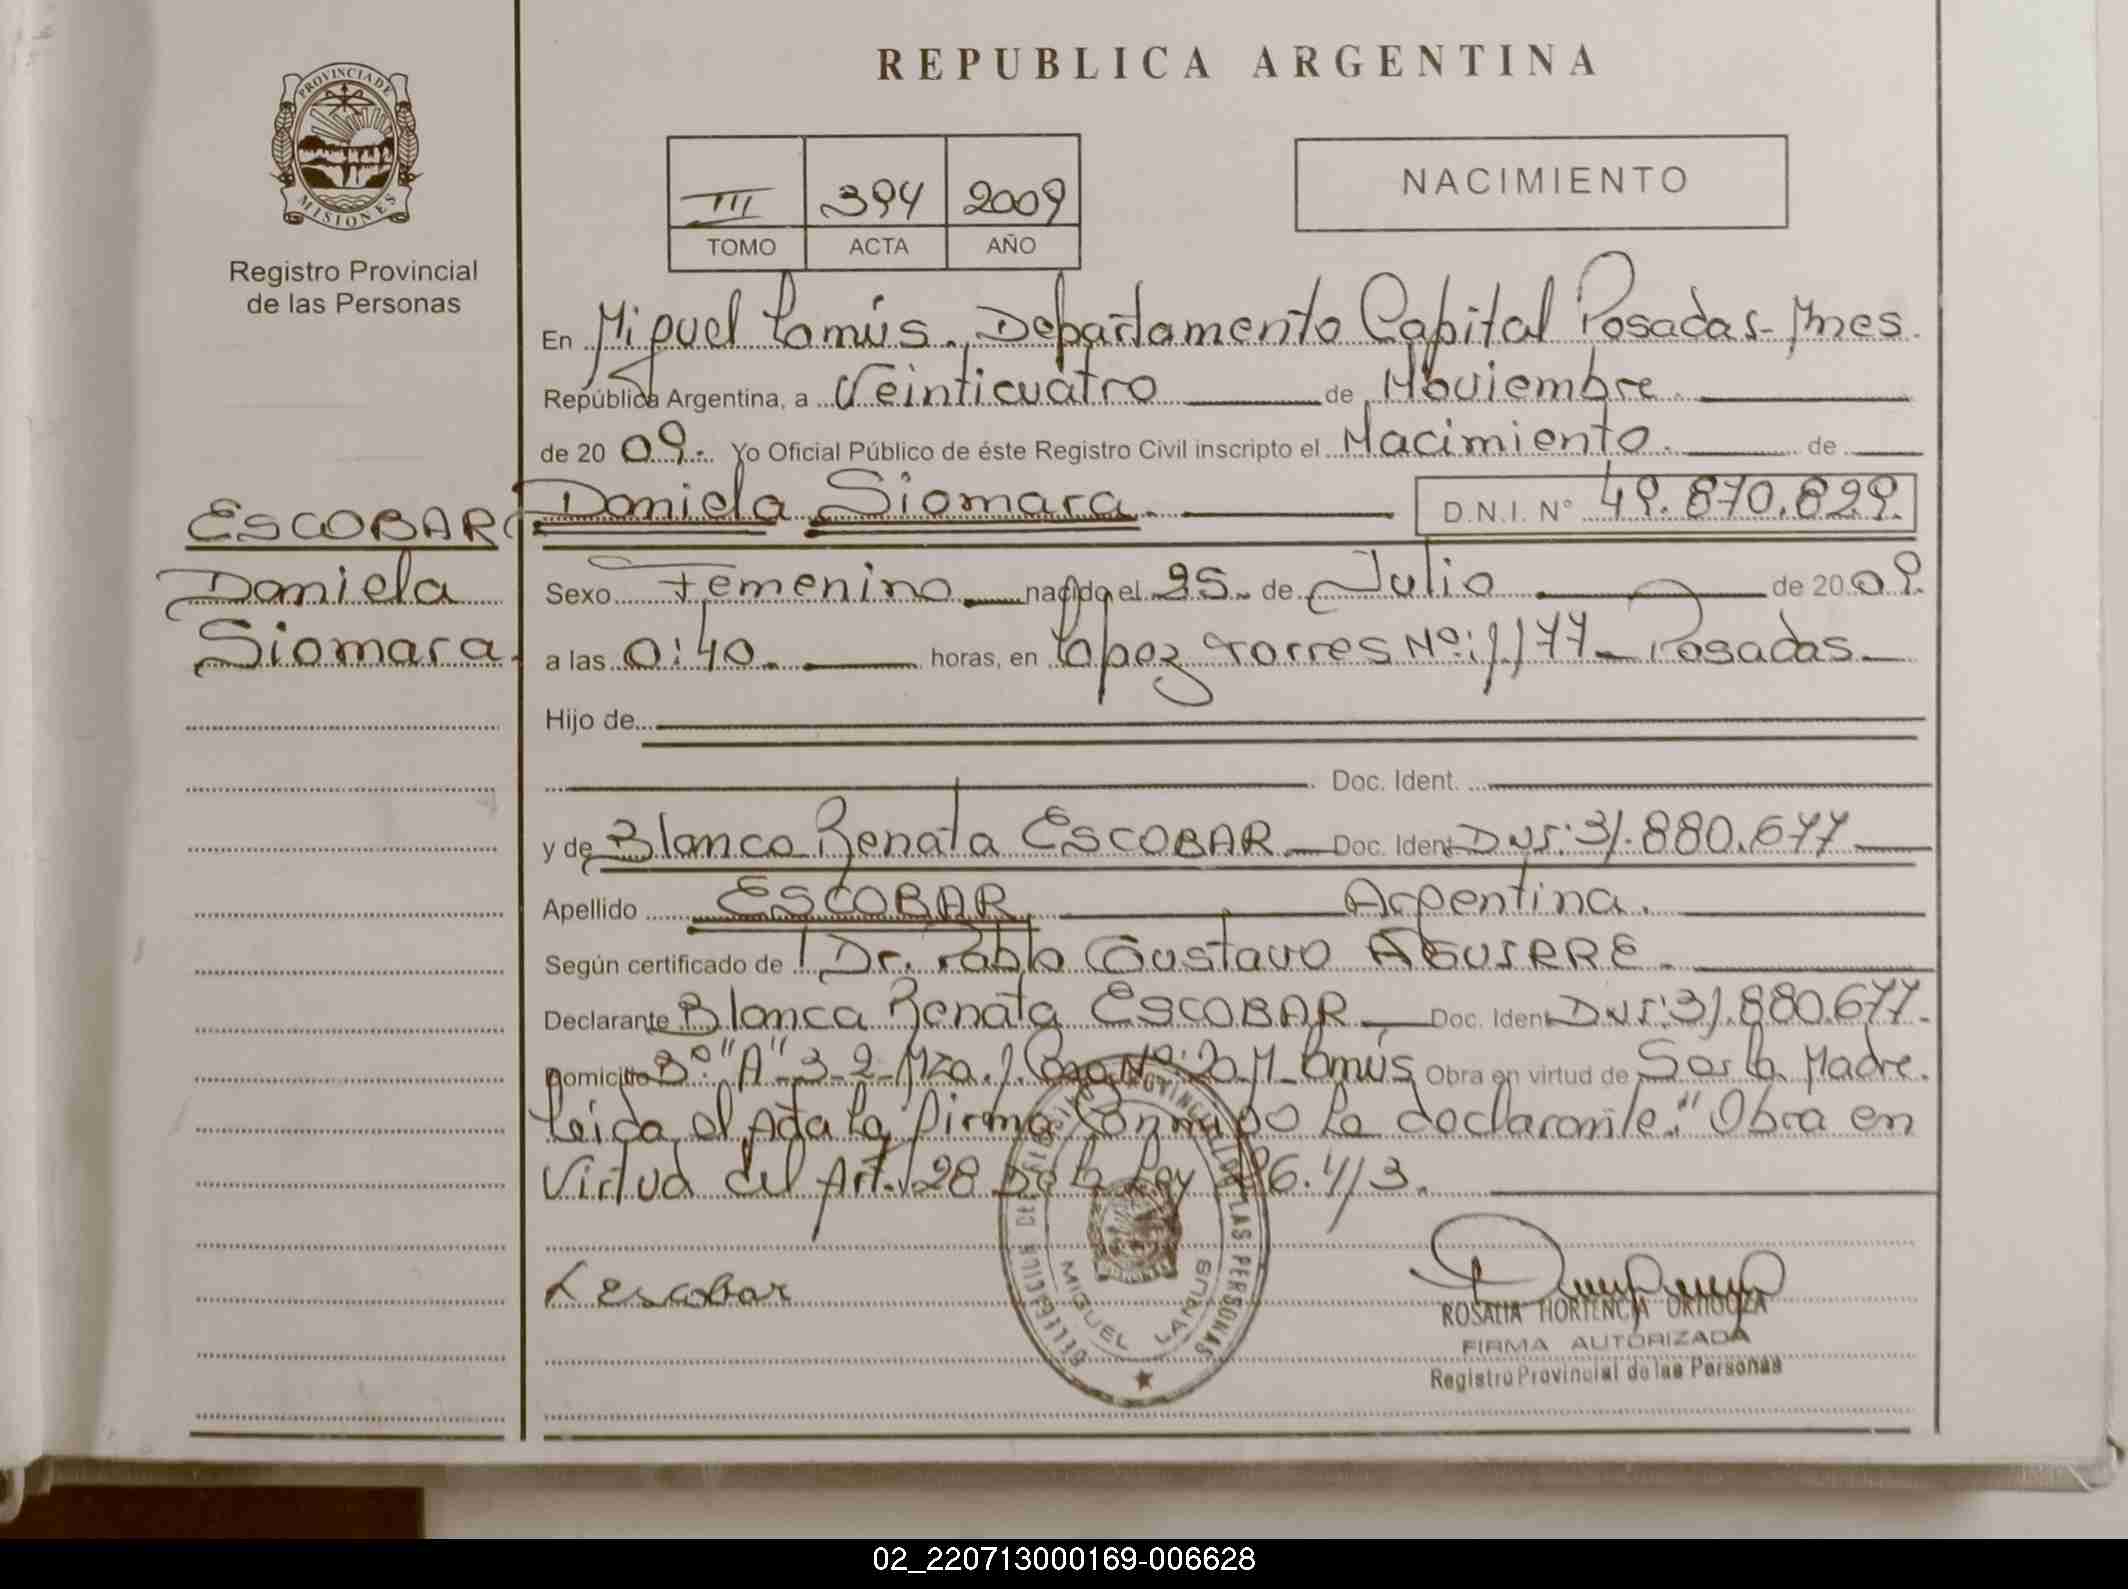 REPUBLICA ARGENTINA
PROVINCIA DE
MISIONES
Registro Provincial
de las Personas
III 394 2009
TOMO ACTA AÑO
NACIMIENTO
En Miguel Lanús. Departamento Capital Posadas-Mnes.
República Argentina, a Veinticuatro de Noviembre
de 20 09. Yo Oficial Público de éste Registro Civil inscripto el Nacimiento. de
ESCOBAR
Daniela
Siomara.
Daniela Siomara. D.N.I. N° 49.870.829.
Sexo Femenino nacido el 25 de Julio de 20 09.
a las 0:40. horas, en López Torres Nº: 1177- Posadas
Hijo de
Doc. Ident.
y de Blanca Renata ESCOBAR Doc. Ident DNI: 31.880.677
Apellido ESCOBAR Argentina.
Según certificado de Dr. Pablo Gustavo AGUIRRE.
Declarante Blanca Renata ESCOBAR Doc. Ident DNI: 31.880.677.
Domicilio 3º "A" 3-2-Mza. J. Casa Nº: 20 M. Lanús Obra en virtud de Ser la Madre.
Leída el Acta la firma Conmigo la declarante." Obra en
Virtud del Art. 28 De la Ley 26.413.
Escobar
MIGUEL LANUS
ROSALIA HORTENCIA ORTIGOZA
FIRMA AUTORIZADA
Registro Provincial de las Personas
02_220713000169-006628